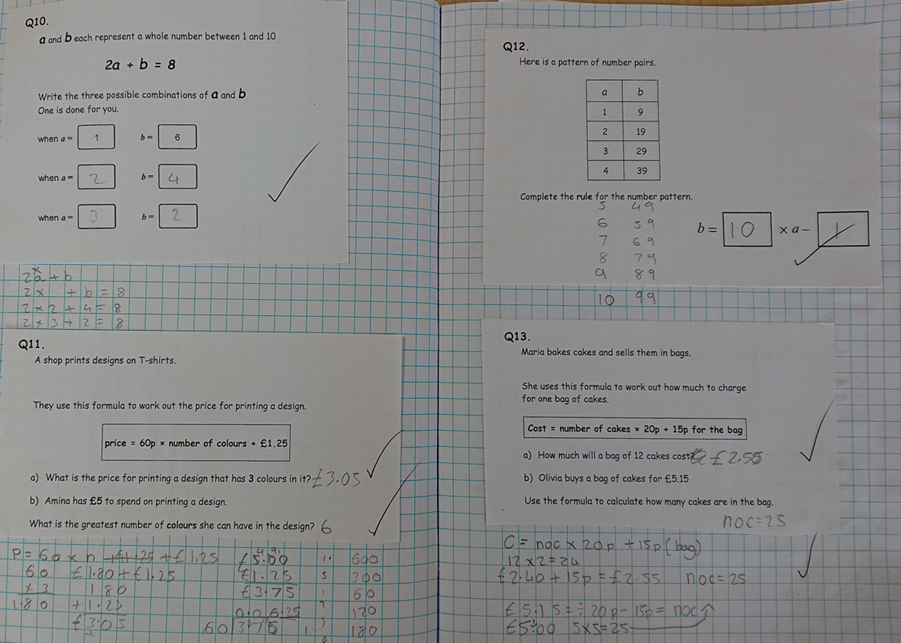 Q10.
a and b each represent a whole number between 1 and 10
2a + b = 8
Write the three possible combinations of a and b
One is done for you.
when a = 1 b = 6
when a = 2 b = 4
when a = 3 b = 2
2a + b
2 × + b = 8
2 × 2 + 4 = 8
2 × 3 + 2 = 8
Q11.
A shop prints designs on T-shirts.
They use this formula to work out the price for printing a design.
price = 60p × number of colours + £1.25
a) What is the price for printing a design that has 3 colours in it? £3.05
b) Amina has £5 to spend on printing a design.
What is the greatest number of colours she can have in the design? 6
P = 60 × n + £1.25
60 £1.80 + £1.25
× 3 1.80
180 + 1.25
£3.05
£5.00
£1.25
£3.75
006.25
60 375
600
300
60
120
180
Q12.
Here is a pattern of number pairs.
a b
1 9
2 19
3 29
4 39
Complete the rule for the number pattern.
5 49
6 59
7 69
8 79
9 89
10 99
b = 10 × a - 1
Q13.
Maria bakes cakes and sells them in bags.
She uses this formula to work out how much to charge
for one bag of cakes.
Cost = number of cakes × 20p + 15p for the bag
a) How much will a bag of 12 cakes cost? £2.55
b) Olivia buys a bag of cakes for £5.15
Use the formula to calculate how many cakes are in the bag.
noc = 25
C = noc × 20p + 15p (bag)
12 × 2 = 24
£2.40 + 15p = £2.55 noc = 25
£5.15 = ÷ 20p - 15p = noc
£5.00 5×5=25